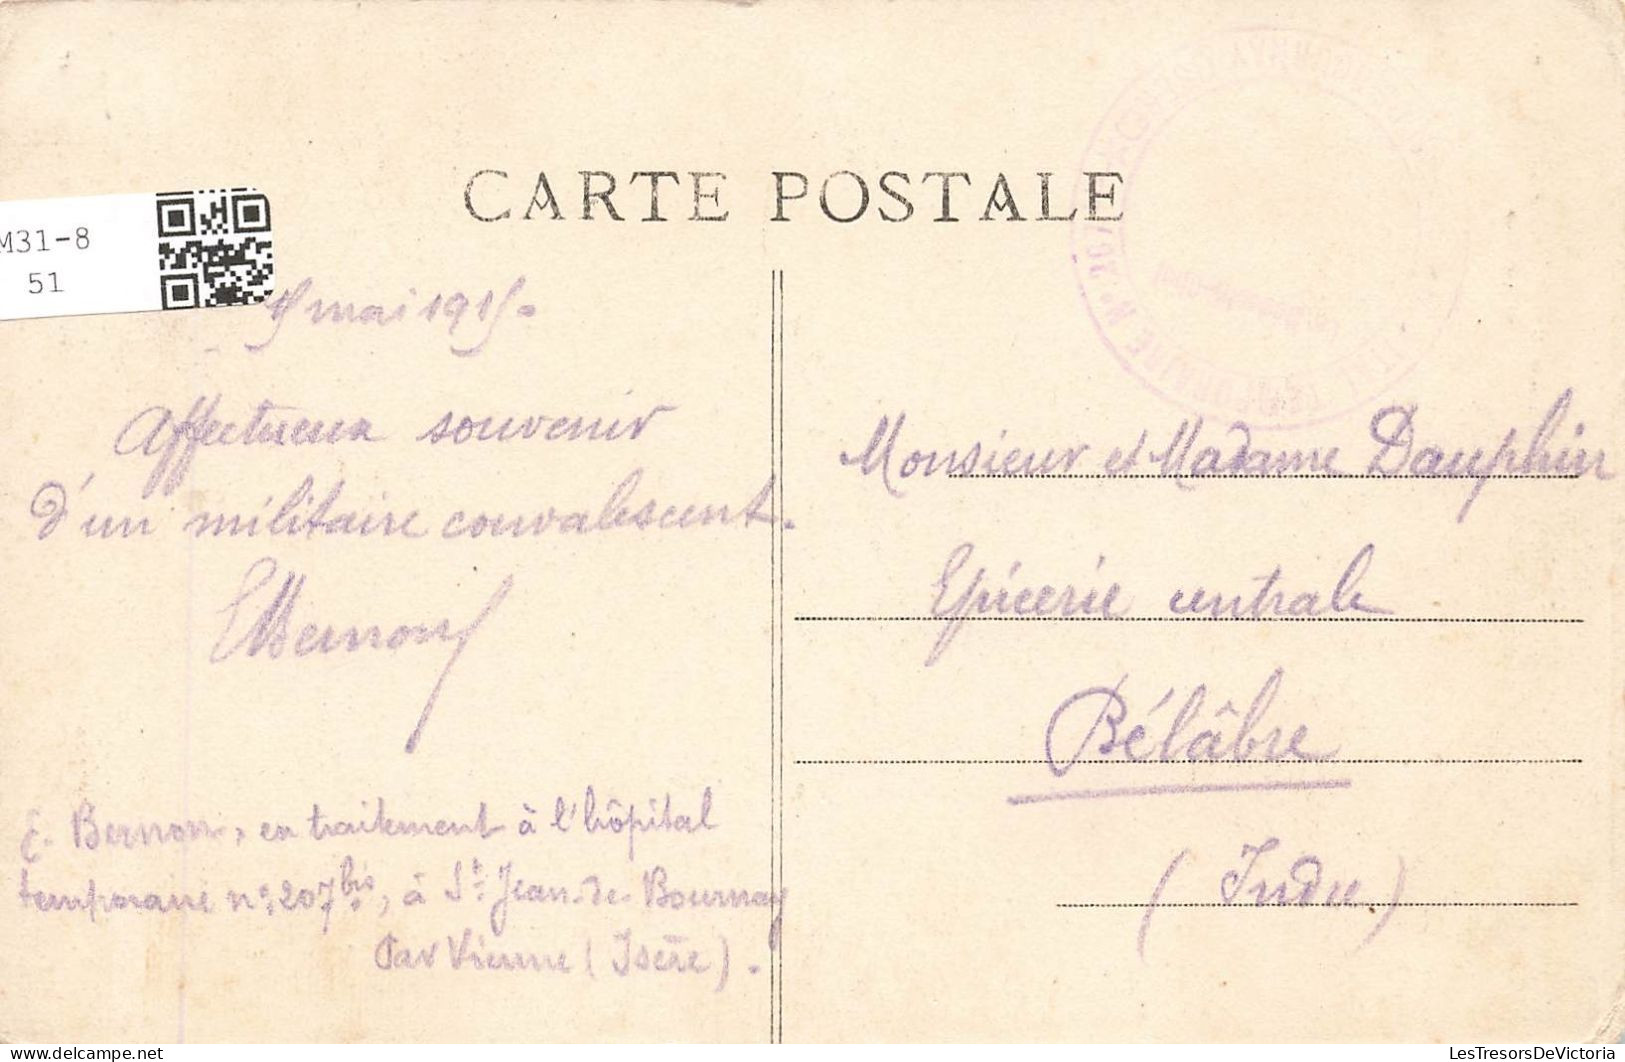 CARTE POSTALE
M31-8
51
mai 1915.
Affectueux souvenir
d'un militaire convalescent.
EBernon
E. Bernon, en traitement à l'hôpital
temporaire n° 207 bis, à St Jean-de-Bournay
Par Vienne (Isère).
Monsieur et Madame Dauphin
Epicerie centrale
Bélâbre
(Indre)
LesTresorsDeVictoria
www.delcampe.net